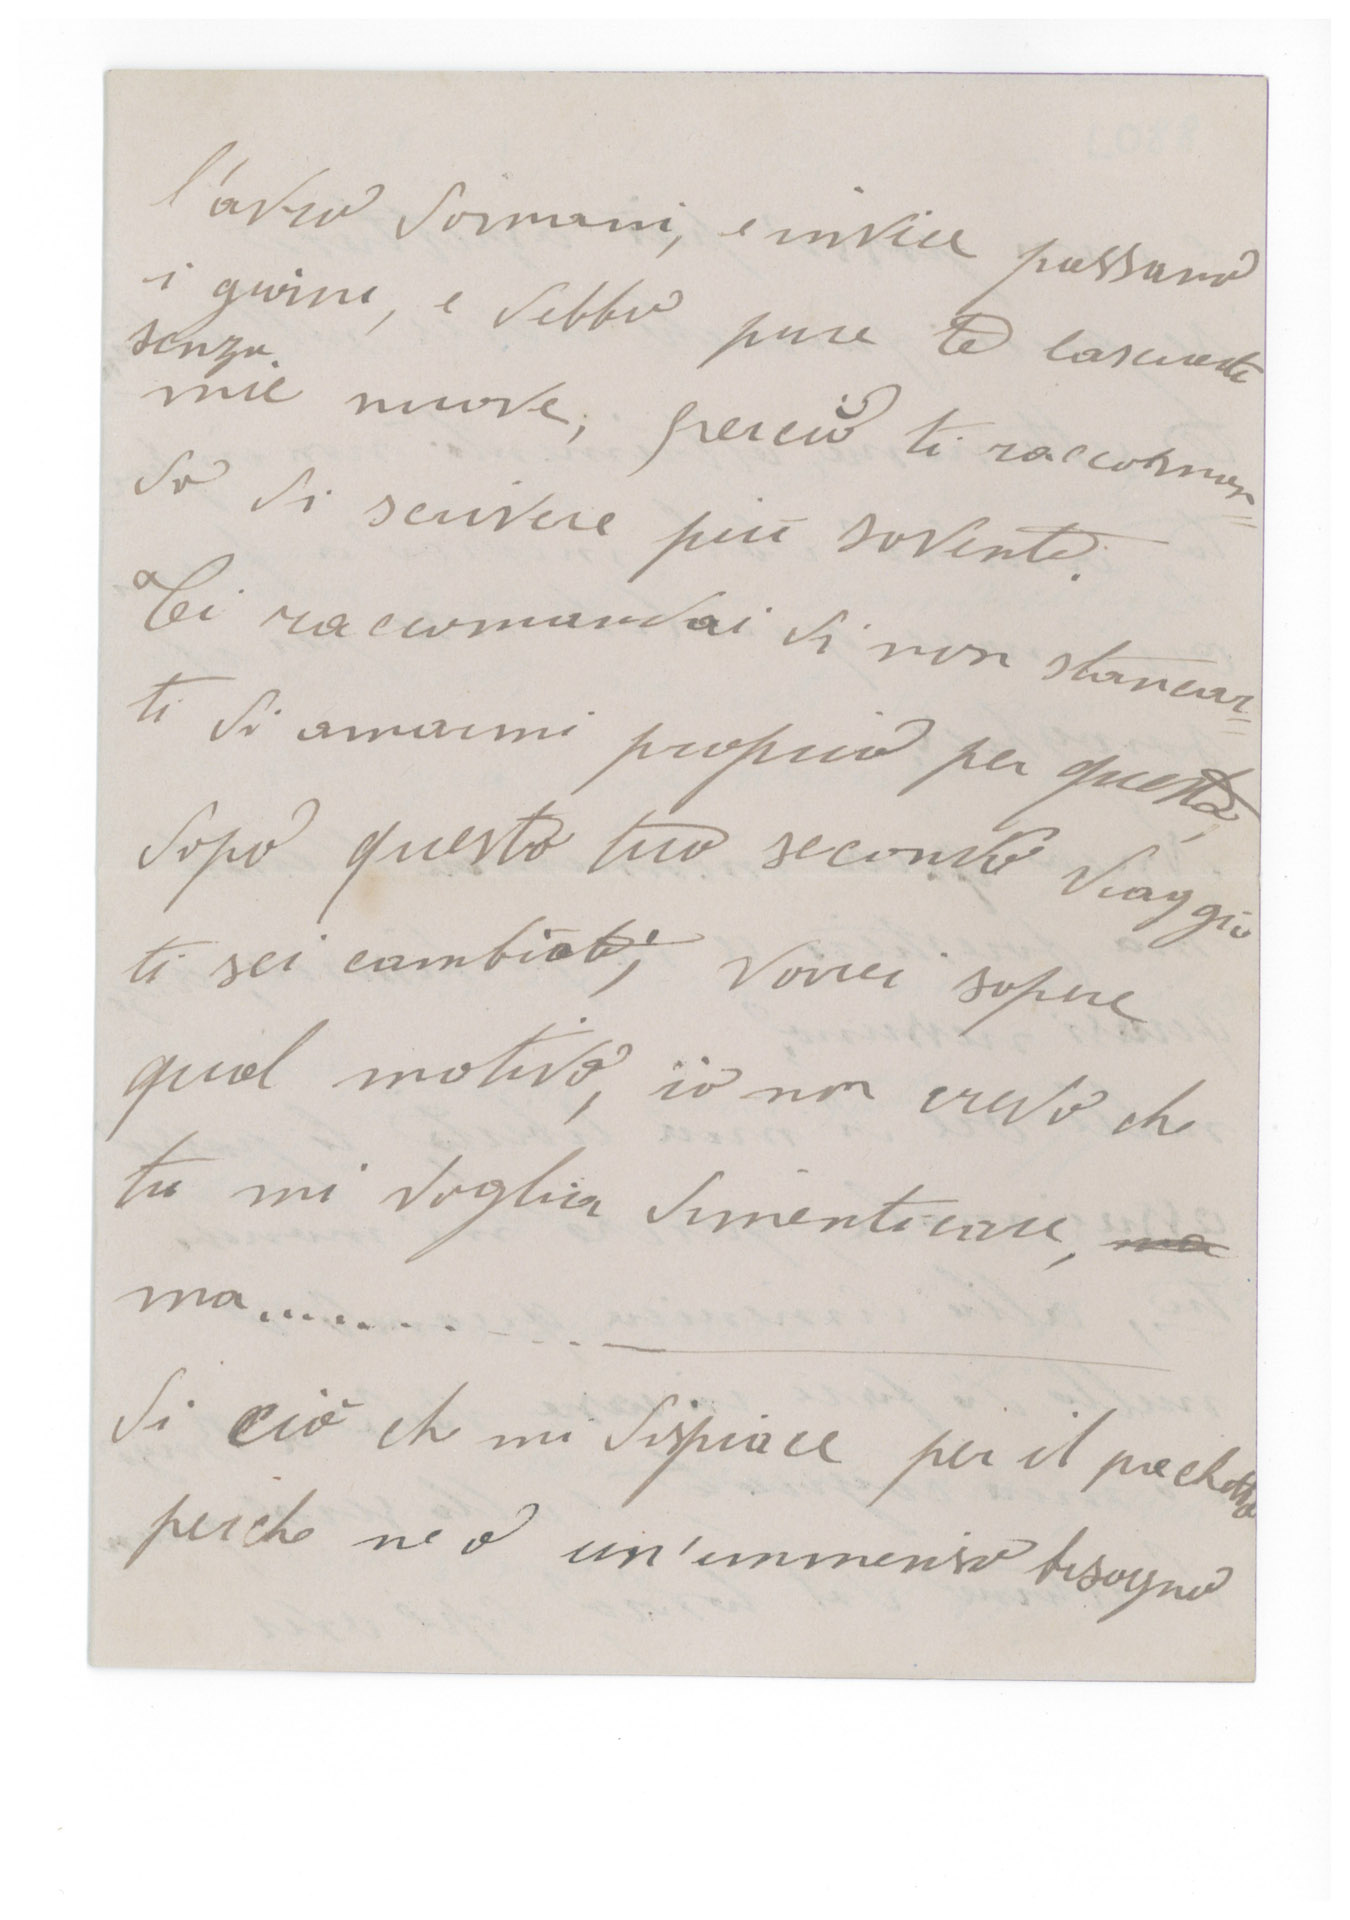 l'avrò domani, e invece passano
i giorni, e debbo pure te lasciarti
senza
mie nuove, perciò ti raccoman=
do di scrivere più sovente.
Ti raccomandai di non stancar=
ti di amarmi proprio per questo,
dopo questo tuo secondo viaggio
ti sei cambiato, vorrei sapere
qual motivo, io non credo che
tu mi voglia dimenticare, ma
ma..............
Di ciò che mi dispiace per il pacchetto
perche ne ò un'immenso bisogno